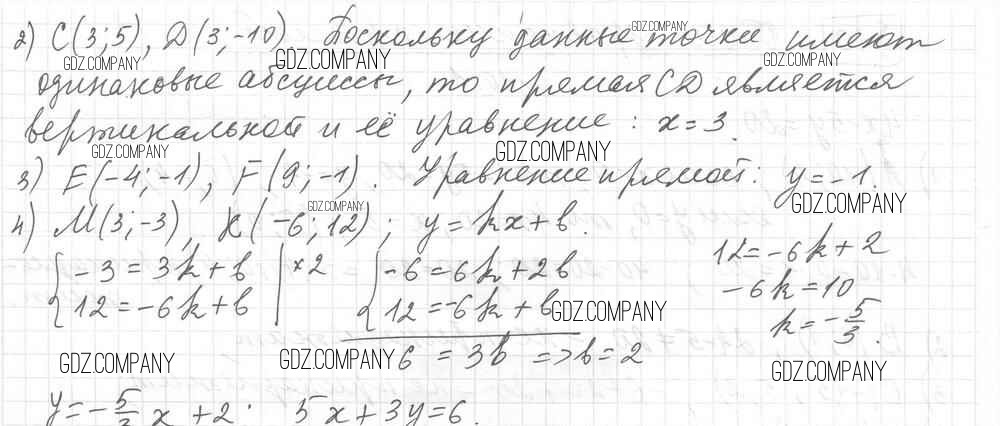 2) C(3;5), D(3;-10) Поскольку данные точки имеют
одинаковые абсциссы, то прямая CD является
вертикальной и её уравнение: x=3.
3) E(-4;-1), F(9;-1). Уравнение прямой: y=-1.
4) M(3;-3), K(-6;12); y=kx+b.
{-3=3k+b |×2
12=-6k+b
{-6=6k+2b
12=-6k+b
6 = 3b => b=2
12=-6k+2
-6k=10
k=-5/3.
y=-5/3 x+2; 5x+3y=6.
GDZ.COMPANY
GDZ.COMPANY
GDZ.COMPANY
GDZ.COMPANY
GDZ.COMPANY
GDZ.COMPANY
GDZ.COMPANY
GDZ.COMPANY
GDZ.COMPANY
GDZ.COMPANY
GDZ.COMPANY
GDZ.COMPANY